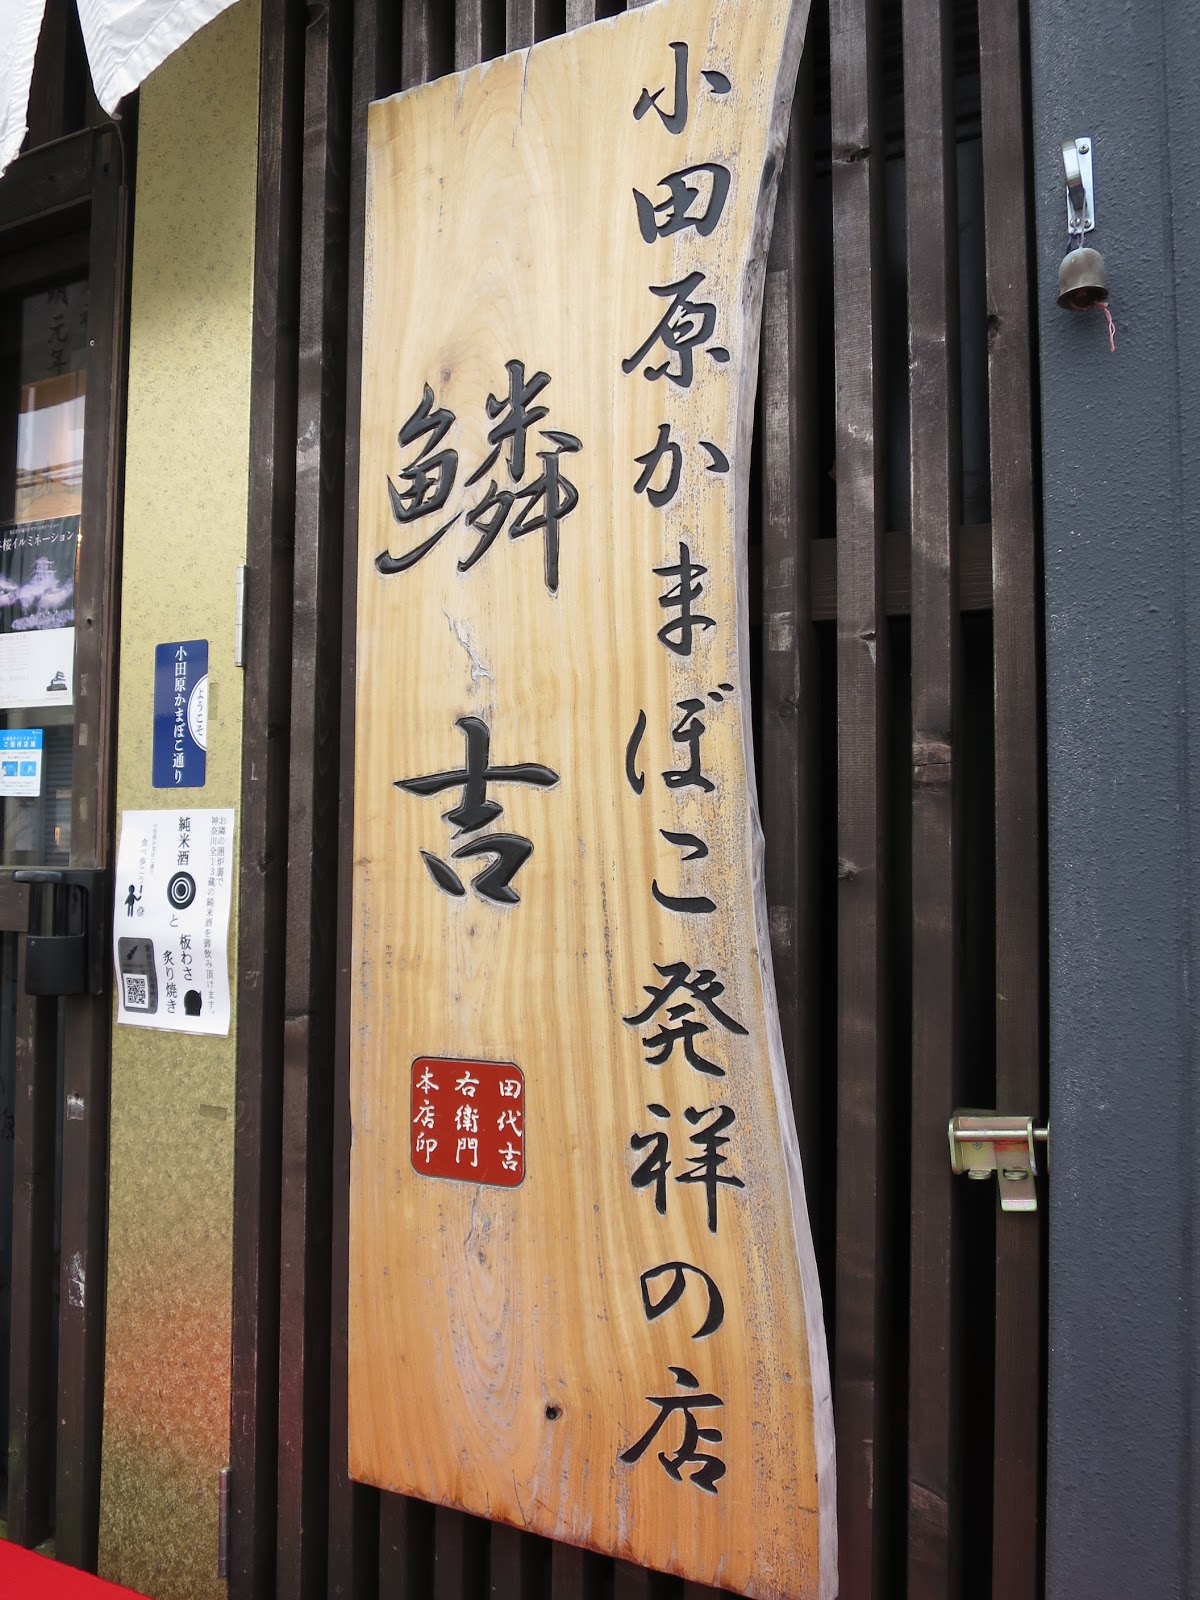 小田原かまぼこ発祥の店
鱗吉
田代吉
右衛門
本店印
小田原かまぼこ通り
ようこそ
お隣の囲炉裏で
神奈川全13蔵の純米酒を御飲み頂けます。
純米酒
と
板わさ
炙り焼き
食べ歩こう
桜イルミネーション
元年